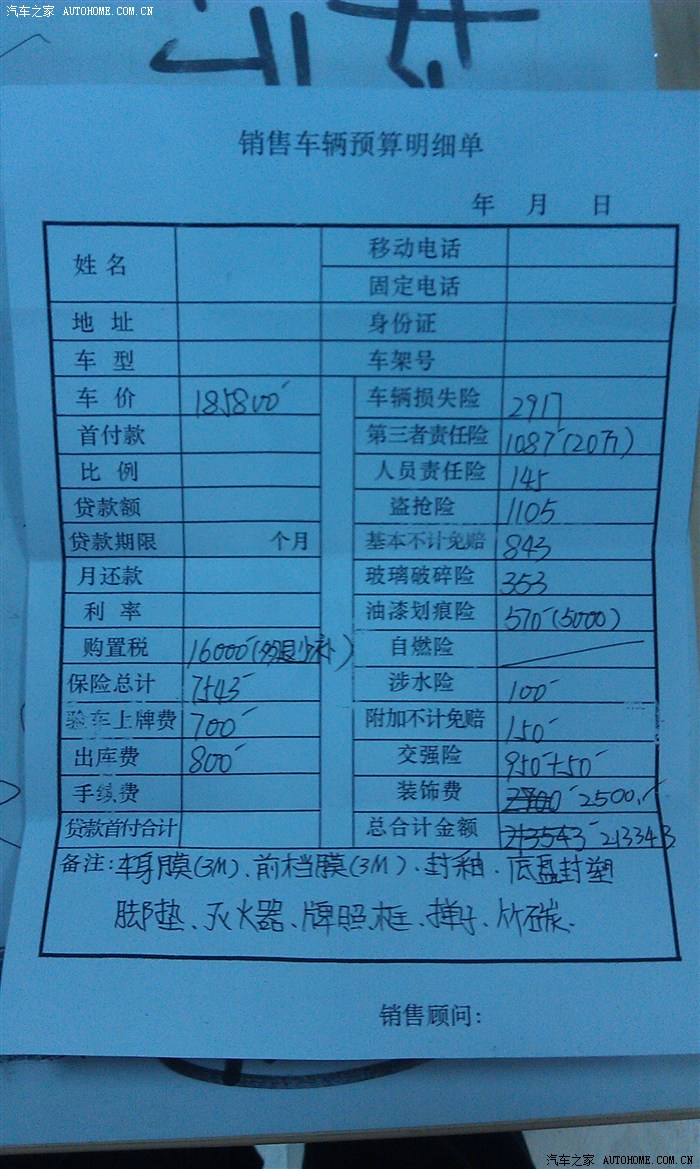 汽车之家 AUTOHOME.COM.CN
销售车辆预算明细单
年 月 日
姓名 移动电话
固定电话
地址 身份证
车型 车架号
车价 185800 车辆损失险 2917
首付款 第三者责任险 1087(20万)
比例 人员责任险 145
贷款额 盗抢险 1105
贷款期限 个月 基本不计免赔 843
月还款 玻璃破碎险 353
利率 油漆划痕险 570(5000)
购置税 16000(多退少补) 自燃险
保险总计 7543 涉水险 100
验车上牌费 700 附加不计免赔 150
出库费 800 交强险 950+50
手续费 装饰费 2700 2500
贷款首付合计 总合计金额 213543 213343
备注:车身膜(3M)、前档膜(3M)、封釉、底盘封塑
脚垫、灭火器、牌照框、掸子、竹碳.
销售顾问:
汽车之家 AUTOHOME.COM.CN